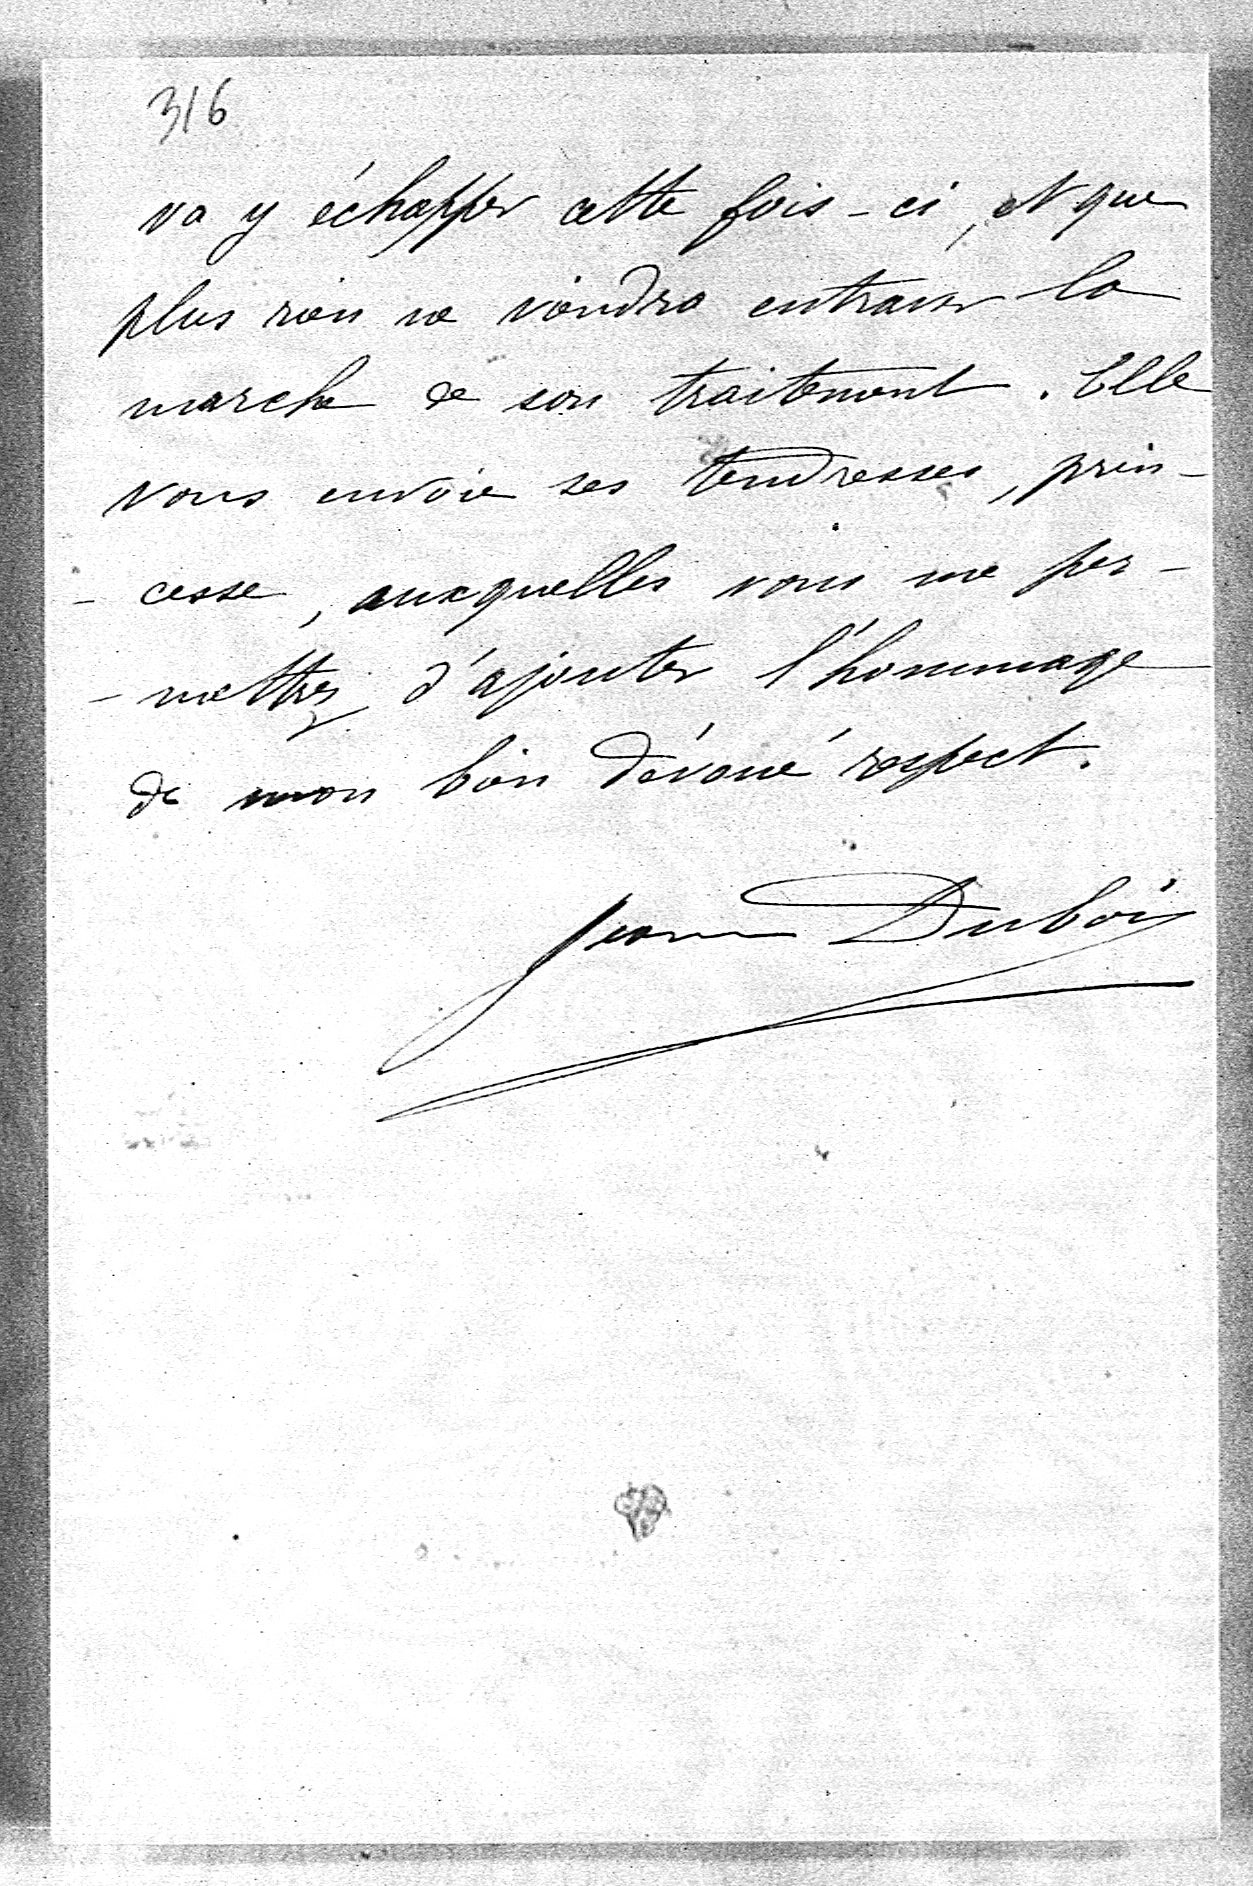 316
va y échapper cette fois-ci, et que
plus rien ne viendra entraver la
marche de son traitement. Elle
vous envoie ses tendresses, prin-
- cesse, auxquelles vous me per-
- mettrez d'ajouter l'hommage
de mon bien dévoué respect.
Jean Dubois